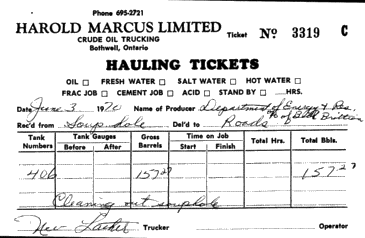 Phone 695-2721
HAROLD MARCUS LIMITED
CRUDE OIL TRUCKING
Bothwell, Ontario
Ticket No 3319 C
HAULING TICKETS
OIL □ FRESH WATER □ SALT WATER □ HOT WATER □
FRAC JOB □ CEMENT JOB □ ACID □ STAND BY □ ......HRS.
Date June 3 1970 Name of Producer Department of Energy & Res.
% of Bill Brittain
Rec'd from Soup hole Del'd to Roads
Tank Numbers Tank Gauges Before After Gross Barrels Time on Job Start Finish Total Hrs. Total Bbls.
406 157 27 157 27
Cleaning out souphole
Trucker Operator